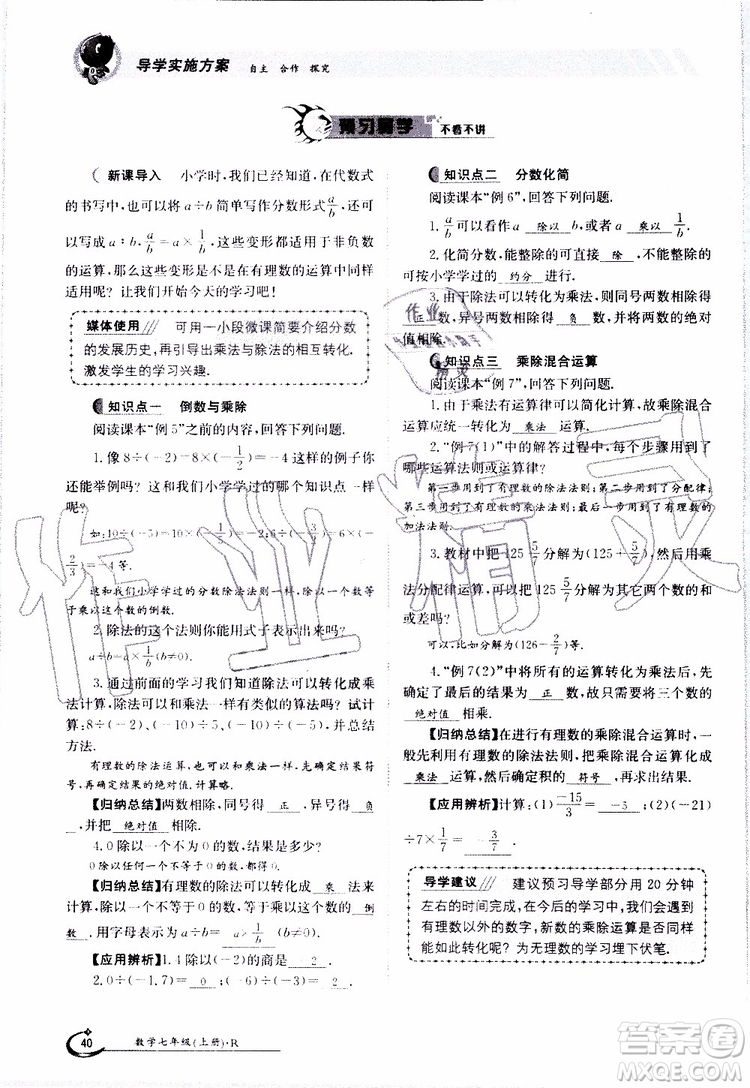 导学实施方案 自主 合作 探究
预习导学 不看不讲
新课导入 小学时，我们已经知道，在代数式
的书写中，可以将 a÷b 简单写作分数形式 a/b，还可
以写成 a∶b，a/b=a×1/b，这些变形都是对于非负数
的运算，那么这些变形是不是在有理数的运算中同样
适用呢？让我们开始今天的学习吧！
媒体使用 可用一小段微课简要介绍分数
的发展历史，再引导出乘法与除法的相互转化.
激发学生的学习兴趣.
知识点一 倒数与乘除
阅读课本“例 5”之前的内容，回答下列问题.
1.像 8÷(-2)=8×(-1/2)=-4 这样的例子你
还能举例吗？这和我们小学学过的知识点一样
呢？
如：10÷(-5)=10×(-1/5)=-2；6÷(-3/2)=6×
(-2/3)=-4 等.
这和我们小学学过的分数除法法则一样，除以一个数等
于乘以这个数的倒数.
2.除法的这个法则你能用式子表示出来吗？
a÷b=a·1/b(b≠0).
3.通过前面的学习我们知道除法可以转化成乘
法来进行计算，有没有和乘法类似的算法呢？试计
算：8÷(-2)，(-10)÷5，(-10)÷(-5)，并总结
方法.
有理数的除法运算，也可以像乘法一样，先确定结果符
号，再把结果的绝对值相乘除.
【归纳总结】两数相除，同号得 正 ，异号得 负
，并把 绝对值 相除.
4.0 除以一个不为 0 的数，结果是多少？
0 除以任何一个不等于 0 的数，都得 0.
【归纳总结】有理数的除法可以转化为 乘 法来
计算.除以一个不等于 0 的数，等于乘以这个数的 倒
数 ，用字母表示为 a÷b=a·1/b (b≠0).
【应用辨析】1.4 除以(-2)的商是 -2 .
2.0÷(-1.7)= 0 ，-6÷(-3)= 2 .
知识点二 分数化简
阅读课本“例 6”，回答下列问题.
1.a/b可以看作 a 除以 b，也可以看作 a 乘以 1/b.
2.化简分数，能整除的可直接 除 ，不能整除的
可按小学学过的 约分 进行.
3.由于除法可以转化为乘法，则同号两数相除得
数，异号两数相除得 负 数，并把两数的绝对
值相除.
知识点三 乘除混合运算
阅读课本“例 7”，回答下列问题.
1.由于乘法有运算律可以简化计算，故乘除混合
运算应统一转化为 乘法 运算.
2.“例 7(1)”中的解答过程中，每个步骤用到了
哪些运算法则或运算律？
第一步用到了有理数的除法法则；第二步用到了分配律；
第三步用到了有理数的乘法法则；第四步用到了有理数的
加法法则.
3.教材中把 125 5/7 分解为(125+5/7)，来运用乘
法分配律运算，可把 125 5/7 分解为其它两个数的和
或差吗？
可以.比如分解为(126-2/7)等.
4.“例 7(2)”中将所有的运算转化为乘法后，先
确定了最后的结果为 正 数，故只需将三个数的
绝对值 相乘.
【归纳总结】在进行有理数的乘除混合运算时，一
般先用有理数的除法法则，把乘除混合运算化成
乘法 运算，然后确定积的 符号 ，最后求出结果.
【应用辨析】计算：(1)-15/3= -5 ；(2)(-3)
÷7×1/7= -3/7 .
导学建议 建议预习导学部分用 20 分钟
左右的时间完成，在今后的学习中，我们会遇到
有理数以外的数字，新数的乘除运算是否仍然
能如此转化？为无理数的学习埋下伏笔.
40 数学七年级(上册)·R
作业精灵